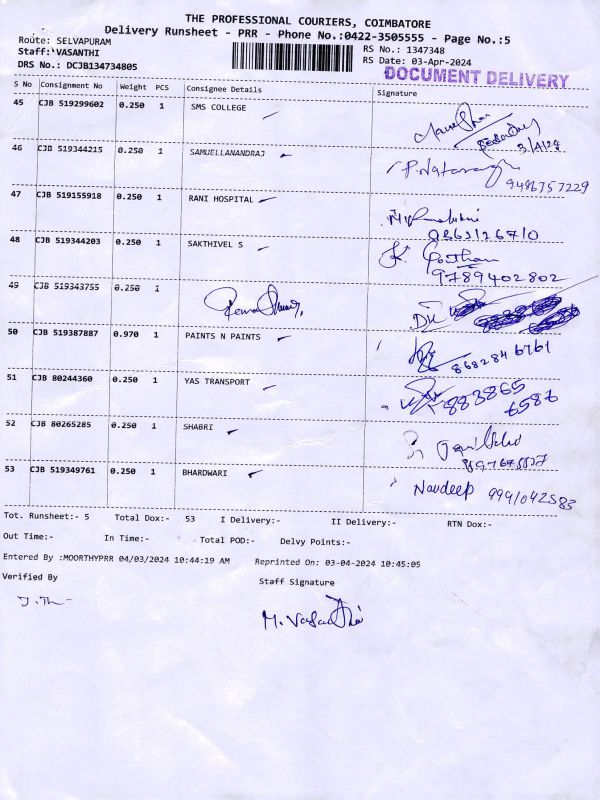 THE PROFESSIONAL COURIERS, COIMBATORE
Delivery Runsheet - PRR - Phone No.:0422-3505555 - Page No.:5
Route: SELVAPURAM RS No.: 1347348
Staff: VASANTHI RS Date: 03-Apr-2024
DRS No.: DCJB134734805 DOCUMENT DELIVERY
S No Consignment No Weight PCS Consignee Details Signature
45 CJB 519299602 0.250 1 SMS COLLEGE
3/4/24
46 CJB 519344215 0.250 1 SAMUELLANANDRAJ P. Natarajan
9486757229
47 CJB 519155918 0.250 1 RANI HOSPITAL
48 CJB 519344203 0.250 1 SAKTHIVEL S K.
9789402802
49 CJB 519343755 0.250 1
50 CJB 519387887 0.970 1 PAINTS N PAINTS
8682846761
51 CJB 80244360 0.250 1 YAS TRANSPORT 883865
6587
52 CJB 80265285 0.250 1 SHABRI
53 CJB 519349761 0.250 1 BHARDWARI Navdeep 9991042583
Tot. Runsheet:- 5 Total Dox:- 53 I Delivery:- II Delivery:- RTN Dox:-
Out Time:- In Time:- Total POD:- Delvy Points:-
Entered By :MOORTHYPRR 04/03/2024 10:44:19 AM Reprinted On: 03-04-2024 10:45:05
Verified By Staff Signature
M. Vasanthi